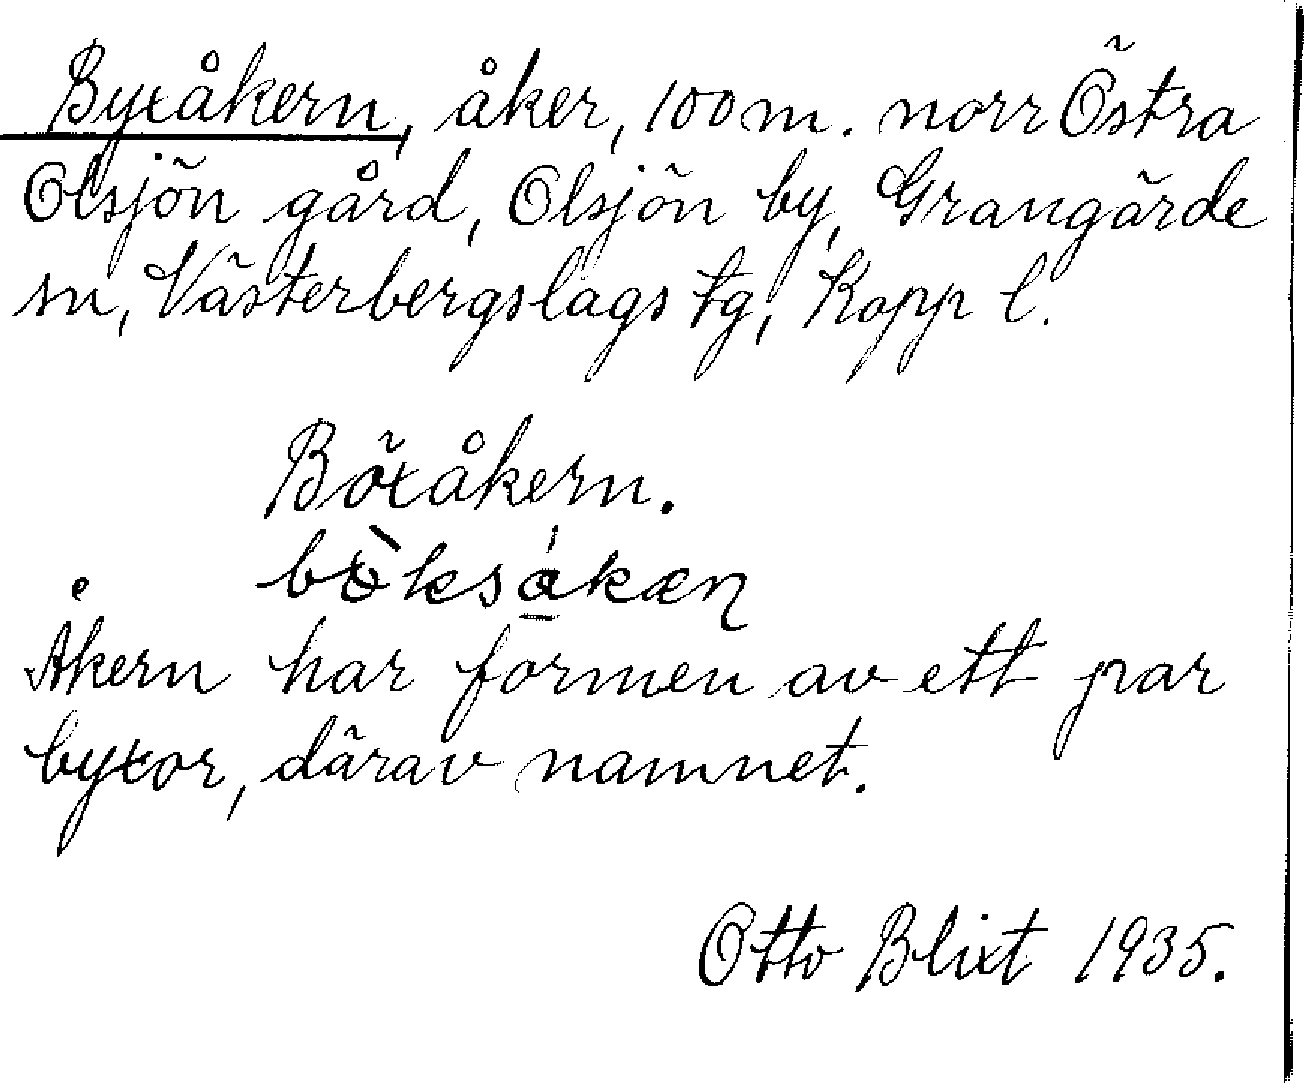 Byxåkern, åker, 100 m. norr Östra
Olsjön gård, Olsjön by, Grangärde
sn, Västerbergslags tg, Kopp l.
Böxåkern.
Åkern har formen av ett par
byxor, därav namnet.
Otto Blixt 1935.